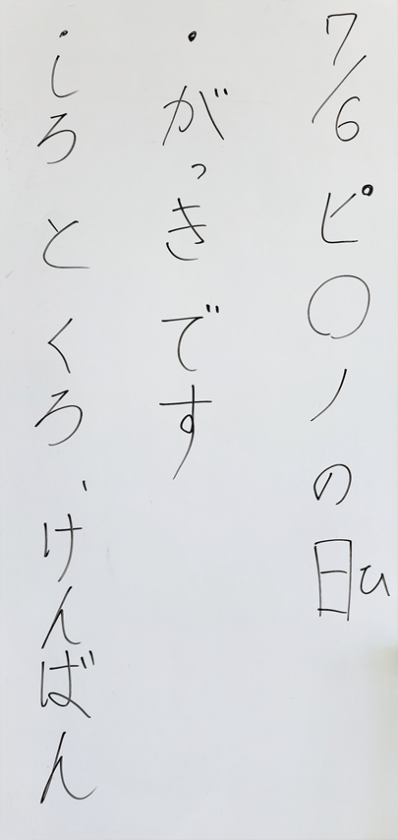 7/6 ピ〇ノの日ひ
・がっきです
・しろとくろ、けんばん